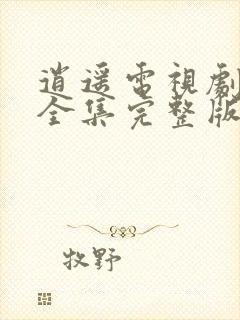 逍遥電視劇
全集完整版
牧野